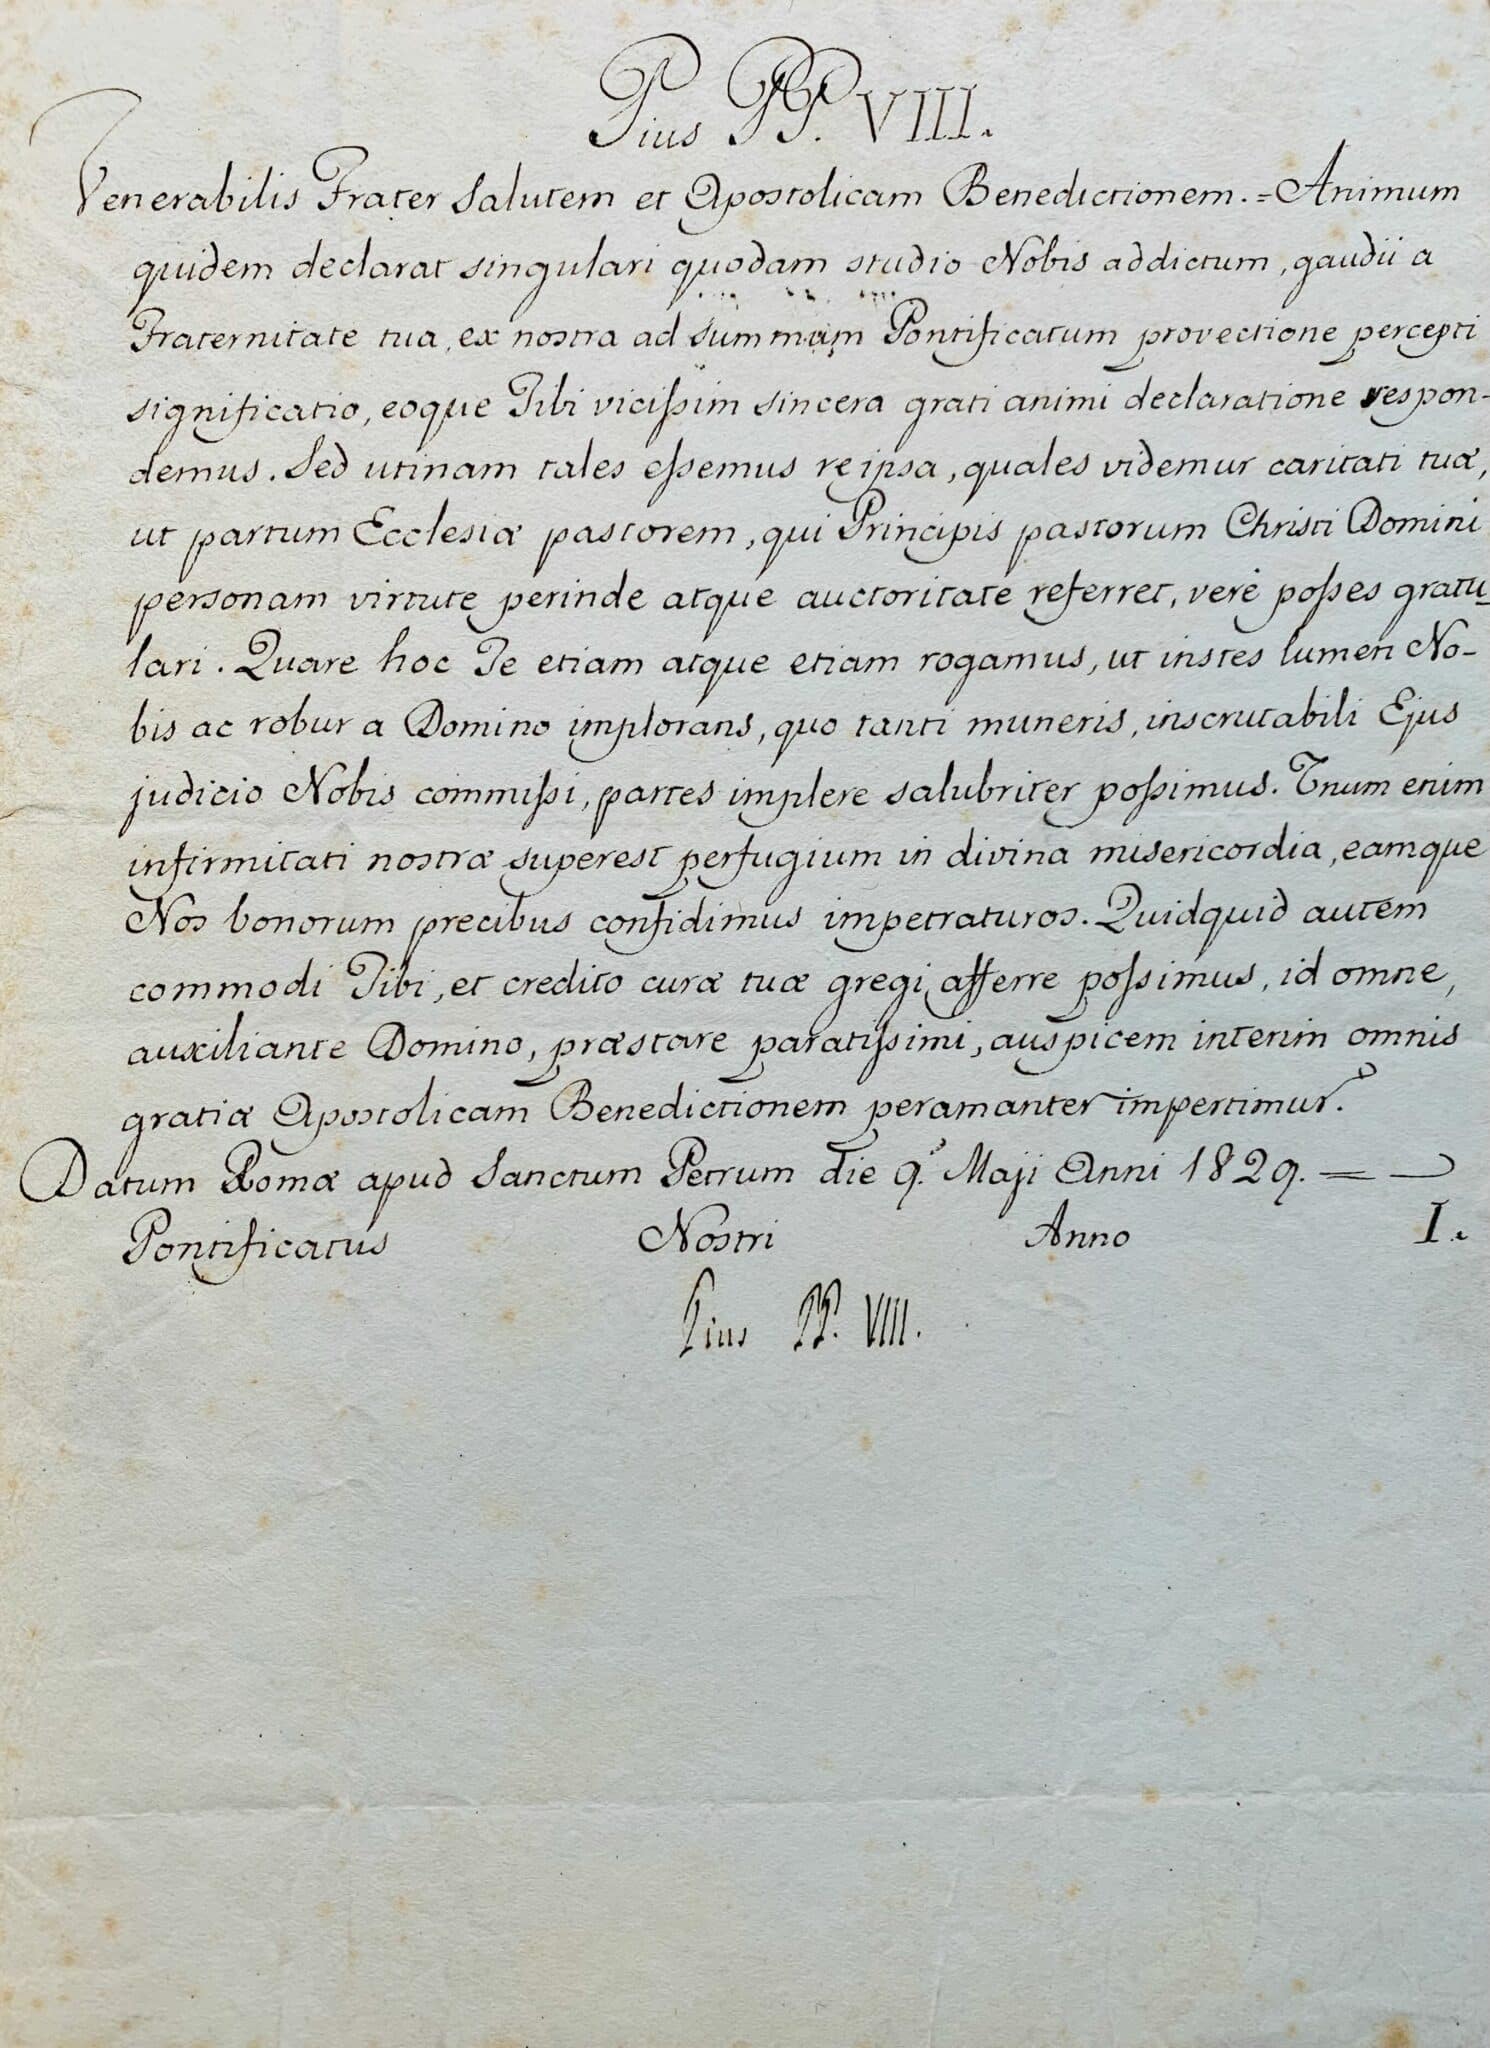 Pius PP. VIII.
Venerabilis Frater Salutem et Apostolicam Benedictionem. = Animum
quidem declarat singulari quodam studio Nobis addictum, gaudii a
Fraternitate tua, ex nostra ad summum Pontificatum provectione percepti
significatio, eoque Tibi vicißim sincera grati animi declaratione respon-
demus. Sed utinam tales eßemus re ipsa, quales videmur caritati tuæ,
ut partum Ecclesiæ pastorem, qui Principis pastorum Christi Domini
personam virtute perinde atque auctoritate referret, verè poßes gratu-
lari. Quare hoc Te etiam atque etiam rogamus, ut instes lumen No-
bis ac robur a Domino implorans, quo tanti muneris, inscrutabili Ejus
judicio Nobis commißi, partes implere salubriter poßimus. Unum enim
infirmitati nostræ superest perfugium in divina misericordia, eamque
Nos bonorum precibus confidimus impetraturos. Quidquid autem
commodi Tibi, et credito curæ tuæ gregi afferre poßimus, id omne,
auxiliante Domino, præstare paratißimi, auspicem interim omnis
gratiæ Apostolicam Benedictionem peramanter impertimur.
Datum Romæ apud Sanctum Petrum die 9.ª Maji Anni 1829. =
Pontificatus Nostri Anno I.
Pius PP. VIII.